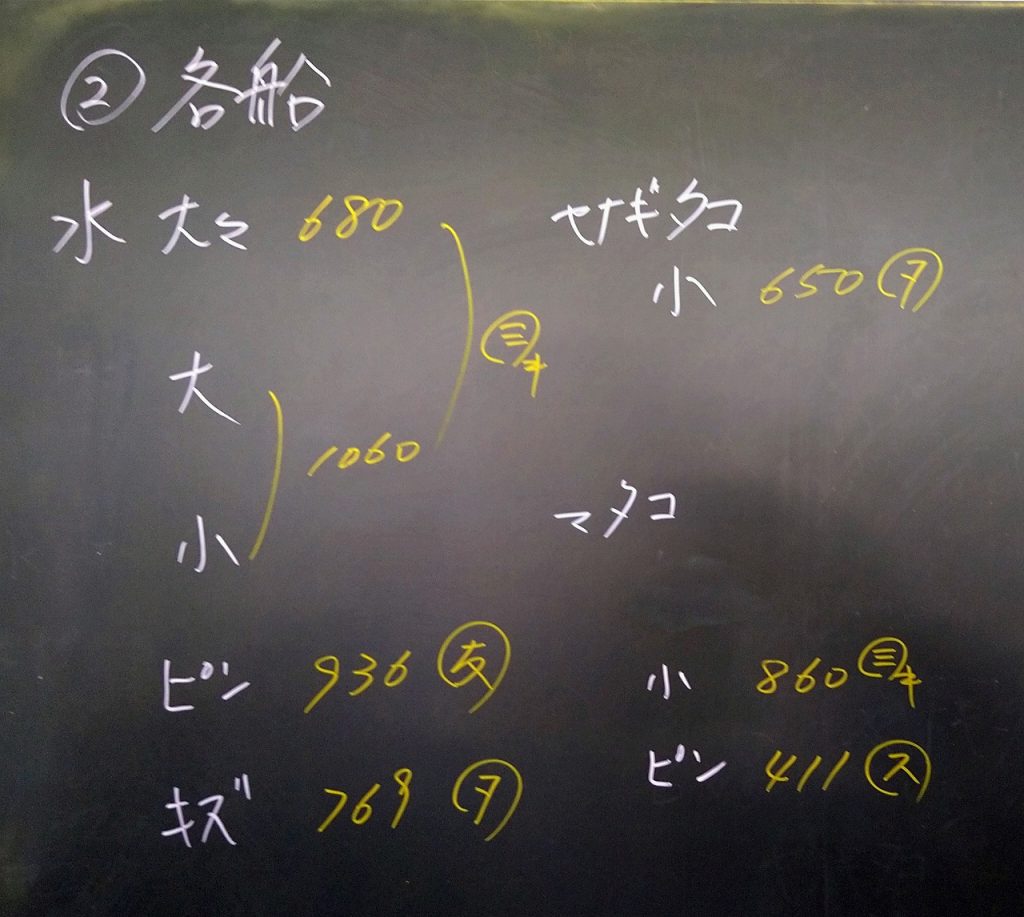 ② 各船
水 大々 680
大
1060
小
㊂キ
ピン 936 ㊒
キズ 769 タ
セナギタコ
小 650 タ
マタコ
小 860 ㊂キ
ピン 411 ス